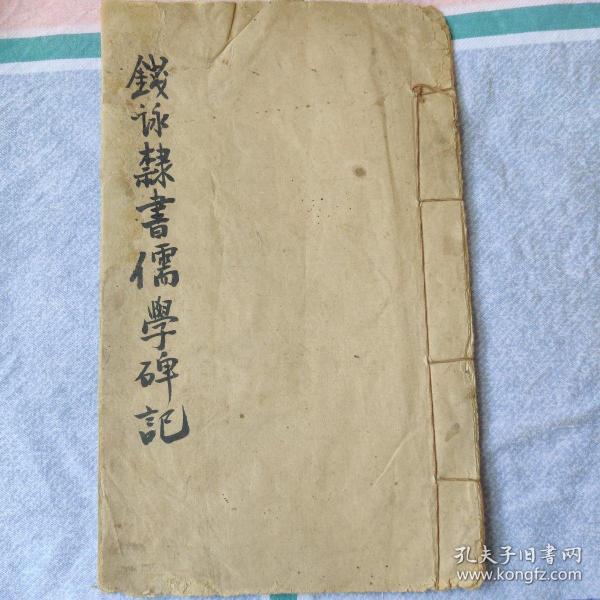 錢詠隸書儒學碑記
孔夫子旧书网
www.kongfz.com